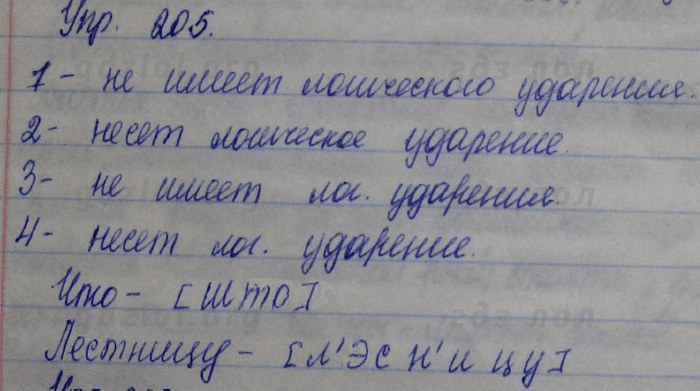 Упр. 205.
1- не имеет логического ударения.
2- несет логическое ударение.
3- не имеет лог. ударения.
4- несет лог. ударение.
Что- [ШТО]
Лестницу- [Л'ЭС Н'И ЦУ]